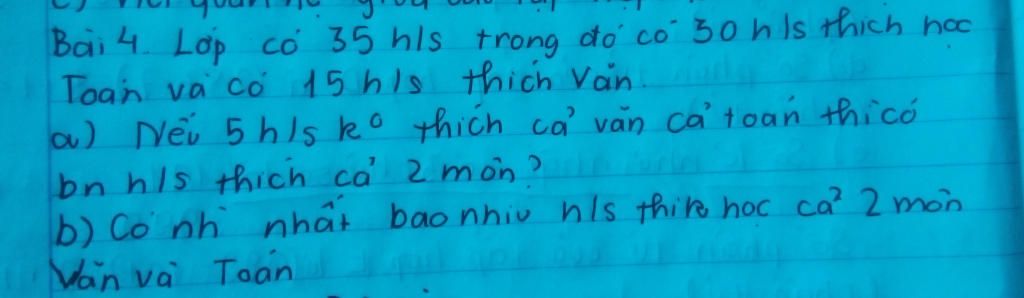 Bài 4. Lớp có 35 h/s trong đó có 30 h/s thích học
Toán và có 15 h/s thích Văn.
a) Nếu 5 h/s k° thích cả văn cả toán thì có
bn h/s thích cả 2 môn?
b) Có nh` nhất bao nhiu h/s thik học cả 2 môn
Văn và Toán